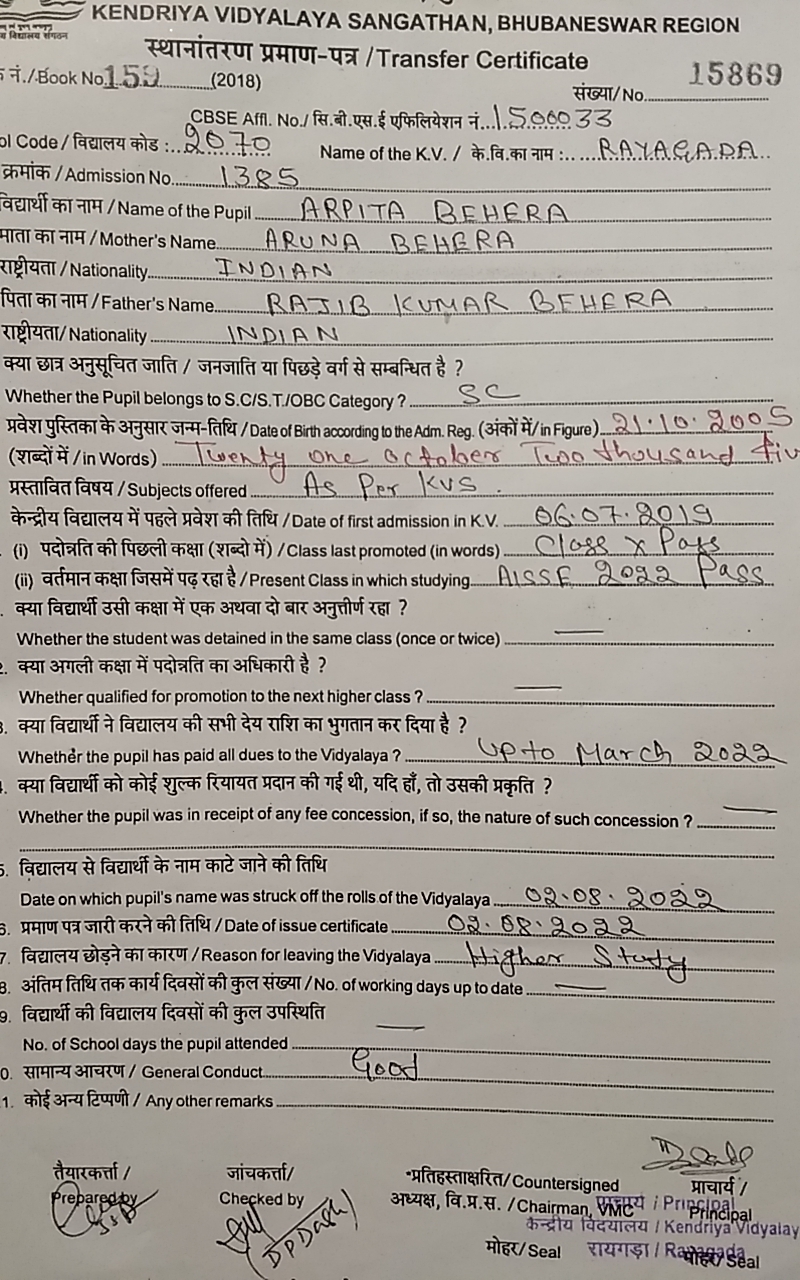 य विद्यालय संगठन
KENDRIYA VIDYALAYA SANGATHAN, BHUBANESWAR REGION
स्थानांतरण प्रमाण-पत्र / Transfer Certificate
नं./Book No. 159 (2018)
संख्या/ No. 15869
CBSE Affl. No./ सि.बी.एस.ई एफिलियेशन नं. 1500033
ol Code / विद्यालय कोड : 2070 Name of the K.V. / के.वि.का नाम : RAYAGADA
क्रमांक / Admission No. 1385
विद्यार्थी का नाम / Name of the Pupil ARPITA BEHERA
माता का नाम / Mother's Name ARUNA BEHERA
राष्ट्रीयता / Nationality INDIAN
पिता का नाम / Father's Name RAJIB KUMAR BEHERA
राष्ट्रीयता/ Nationality INDIAN
क्या छात्र अनुसूचित जाति / जनजाति या पिछड़े वर्ग से सम्बन्धित है ?
Whether the Pupil belongs to S.C/S.T./OBC Category ? SC
प्रवेश पुस्तिका के अनुसार जन्म-तिथि / Date of Birth according to the Adm. Reg. (अंकों में/ in Figure) 21.10.2005
(शब्दों में / in Words) Twenty one october Two thousand fiv
प्रस्तावित विषय / Subjects offered As Per KVS.
केन्द्रीय विद्यालय में पहले प्रवेश की तिथि / Date of first admission in K.V. 06.07.2019
(i) पदोन्नति की पिछली कक्षा (शब्दो में) / Class last promoted (in words) Class X Pass
(ii) वर्तमान कक्षा जिसमें पढ़ रहा है / Present Class in which studying AISSE 2022 Pass
. क्या विद्यार्थी उसी कक्षा में एक अथवा दो बार अनुत्तीर्ण रहा ?
Whether the student was detained in the same class (once or twice) —
2. क्या अगली कक्षा में पदोन्नति का अधिकारी है ?
Whether qualified for promotion to the next higher class ? —
3. क्या विद्यार्थी ने विद्यालय की सभी देय राशि का भुगतान कर दिया है ?
Whether the pupil has paid all dues to the Vidyalaya ? Up to March 2022
. क्या विद्यार्थी को कोई शुल्क रियायत प्रदान की गई थी, यदि हाँ, तो उसकी प्रकृति ?
Whether the pupil was in receipt of any fee concession, if so, the nature of such concession ? —
5. विद्यालय से विद्यार्थी के नाम काटे जाने की तिथि
Date on which pupil's name was struck off the rolls of the Vidyalaya 02.08.2022
6. प्रमाण पत्र जारी करने की तिथि / Date of issue certificate 02.08.2022
7. विद्यालय छोड़ने का कारण / Reason for leaving the Vidyalaya Higher Study
8. अंतिम तिथि तक कार्य दिवसों की कुल संख्या / No. of working days up to date —
9. विद्यार्थी की विद्यालय दिवसों की कुल उपस्थिति
No. of School days the pupil attended —
0. सामान्य आचरण / General Conduct Good
1. कोई अन्य टिप्पणी / Any other remarks
तैयारकर्त्ता / जांचकर्त्ता/ *प्रतिहस्ताक्षरित/ Countersigned प्राचार्य /
Prepared by Checked by अध्यक्ष, वि.प्र.स. / Chairman, VMC Principal
प्राचार्य / Principal
(DP Dash)
केन्द्रीय विदयालय / Kendriya Vidyalay
मोहर/ Seal रायगड़ा / Rayagada मोहर/ Seal